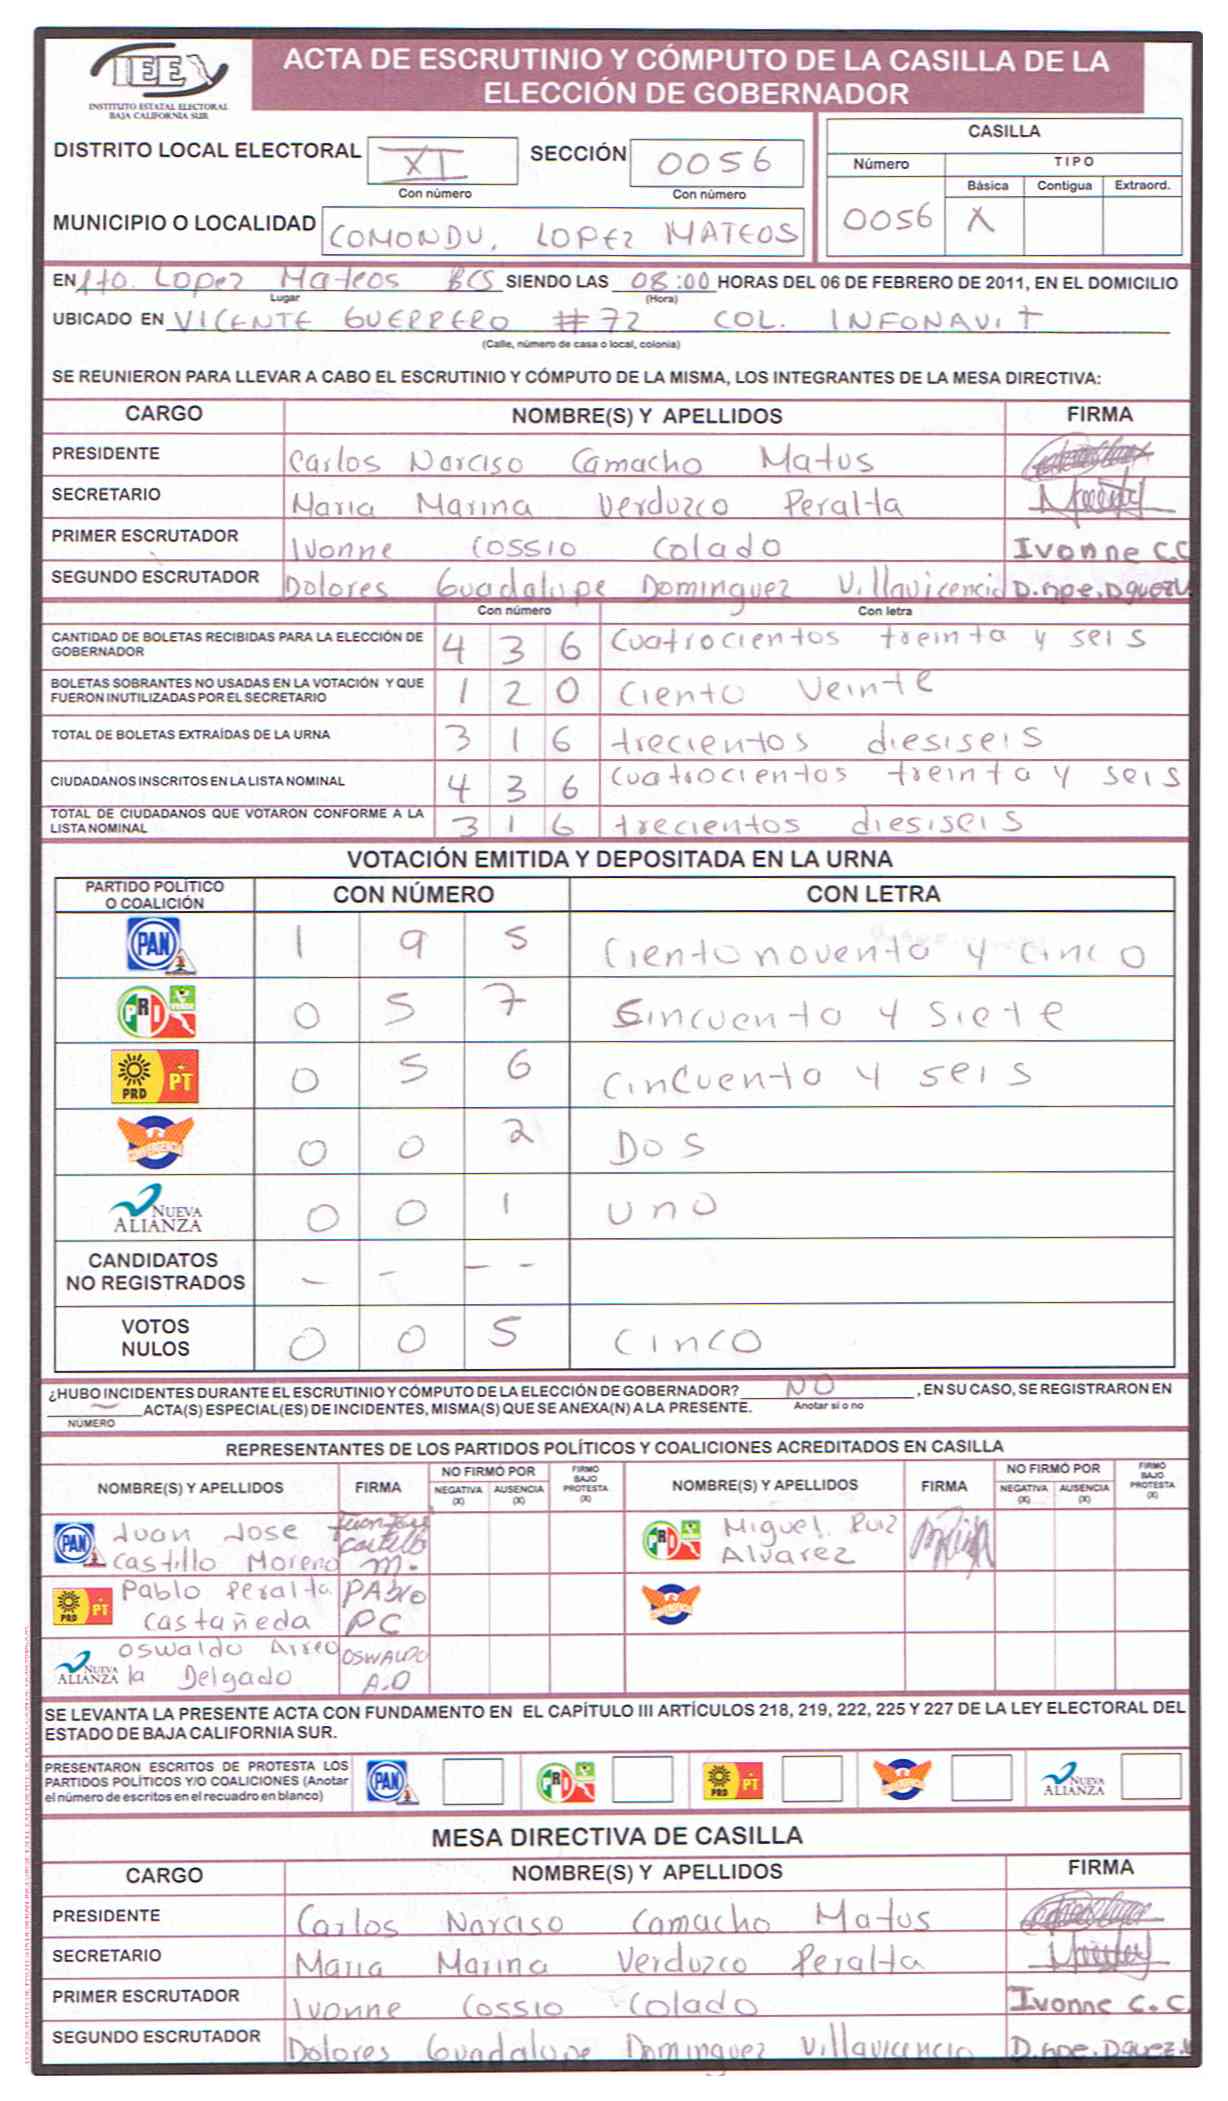 IEE
INSTITUTO ESTATAL ELECTORAL
BAJA CALIFORNIA SUR
ACTA DE ESCRUTINIO Y CÓMPUTO DE LA CASILLA DE LA
ELECCIÓN DE GOBERNADOR
DISTRITO LOCAL ELECTORAL XI SECCIÓN 0056
Con número Con número
MUNICIPIO O LOCALIDAD COMONDU, LOPEZ MATEOS
CASILLA
Número TIPO
Básica Contigua Extraord.
0056 X
EN Pto. Lopez Mateos BCS SIENDO LAS 08:00 HORAS DEL 06 DE FEBRERO DE 2011, EN EL DOMICILIO
Lugar (Hora)
UBICADO EN VICENTE GUERRERO #72 COL. INFONAVIT
(Calle, número de casa o local, colonia)
SE REUNIERON PARA LLEVAR A CABO EL ESCRUTINIO Y CÓMPUTO DE LA MISMA, LOS INTEGRANTES DE LA MESA DIRECTIVA:
CARGO NOMBRE(S) Y APELLIDOS FIRMA
PRESIDENTE Carlos Narciso Camacho Matus
SECRETARIO Maria Marina Verduzco Peralta
PRIMER ESCRUTADOR Ivonne Cossio Colado Ivonne C.C
SEGUNDO ESCRUTADOR Dolores Guadalupe Dominguez Villavicencio D.Gpe.DguezV.
Con número Con letra
CANTIDAD DE BOLETAS RECIBIDAS PARA LA ELECCIÓN DE
GOBERNADOR 4 3 6 Cuatrocientos treinta y seis
BOLETAS SOBRANTES NO USADAS EN LA VOTACIÓN Y QUE
FUERON INUTILIZADAS POR EL SECRETARIO 1 2 0 Ciento veinte
TOTAL DE BOLETAS EXTRAÍDAS DE LA URNA 3 1 6 trecientos diesiseis
CIUDADANOS INSCRITOS EN LA LISTA NOMINAL 4 3 6 cuatrocientos treinta y seis
TOTAL DE CIUDADANOS QUE VOTARON CONFORME A LA
LISTA NOMINAL 3 1 6 trecientos diesiseis
VOTACIÓN EMITIDA Y DEPOSITADA EN LA URNA
PARTIDO POLÍTICO
O COALICIÓN CON NÚMERO CON LETRA
PAN 1 9 5 Ciento noventa y cinco
PRI VERDE 0 5 7 Sincuenta y siete
PRD PT 0 5 6 Cincuenta y seis
CONVERGENCIA 0 0 2 DOS
NUEVA
ALIANZA 0 0 1 uno
CANDIDATOS
NO REGISTRADOS - - - -
VOTOS
NULOS 0 0 5 CINCO
¿HUBO INCIDENTES DURANTE EL ESCRUTINIO Y CÓMPUTO DE LA ELECCIÓN DE GOBERNADOR? NO , EN SU CASO, SE REGISTRARON EN
Anotar si o no
- ACTA(S) ESPECIAL(ES) DE INCIDENTES, MISMA(S) QUE SE ANEXA(N) A LA PRESENTE.
NÚMERO
REPRESENTANTES DE LOS PARTIDOS POLÍTICOS Y COALICIONES ACREDITADOS EN CASILLA
NOMBRE(S) Y APELLIDOS FIRMA NO FIRMÓ POR NEGATIVA (X) AUSENCIA (X) FIRMÓ BAJO PROTESTA (X) NOMBRE(S) Y APELLIDOS FIRMA NO FIRMÓ POR NEGATIVA (X) AUSENCIA (X) FIRMÓ BAJO PROTESTA (X)
PAN Juan Jose Juan Jose PRI VERDE Miguel Ruiz
Castillo Moreno Castillo M. Alvarez
PRD PT Pablo Peralta PAblo CONVERGENCIA
Castañeda PC
NUEVA Oswaldo Arreo OSWALDO
ALIANZA la Delgado A.D
SE LEVANTA LA PRESENTE ACTA CON FUNDAMENTO EN EL CAPÍTULO III ARTÍCULOS 218, 219, 222, 225 Y 227 DE LA LEY ELECTORAL DEL
ESTADO DE BAJA CALIFORNIA SUR.
PRESENTARON ESCRITOS DE PROTESTA LOS
PARTIDOS POLÍTICOS Y/O COALICIONES (Anotar
el número de escritos en el recuadro en blanco) PAN PRI VERDE PRD PT CONVERGENCIA NUEVA ALIANZA
MESA DIRECTIVA DE CASILLA
CARGO NOMBRE(S) Y APELLIDOS FIRMA
PRESIDENTE Carlos Narciso Camacho Matus
SECRETARIO Maria Marina Verduzco Peralta
PRIMER ESCRUTADOR Ivonne Cossio Colado Ivonne C.C.
SEGUNDO ESCRUTADOR Dolores Guadalupe Dominguez Villavicencio D.Gpe.Dguez.V